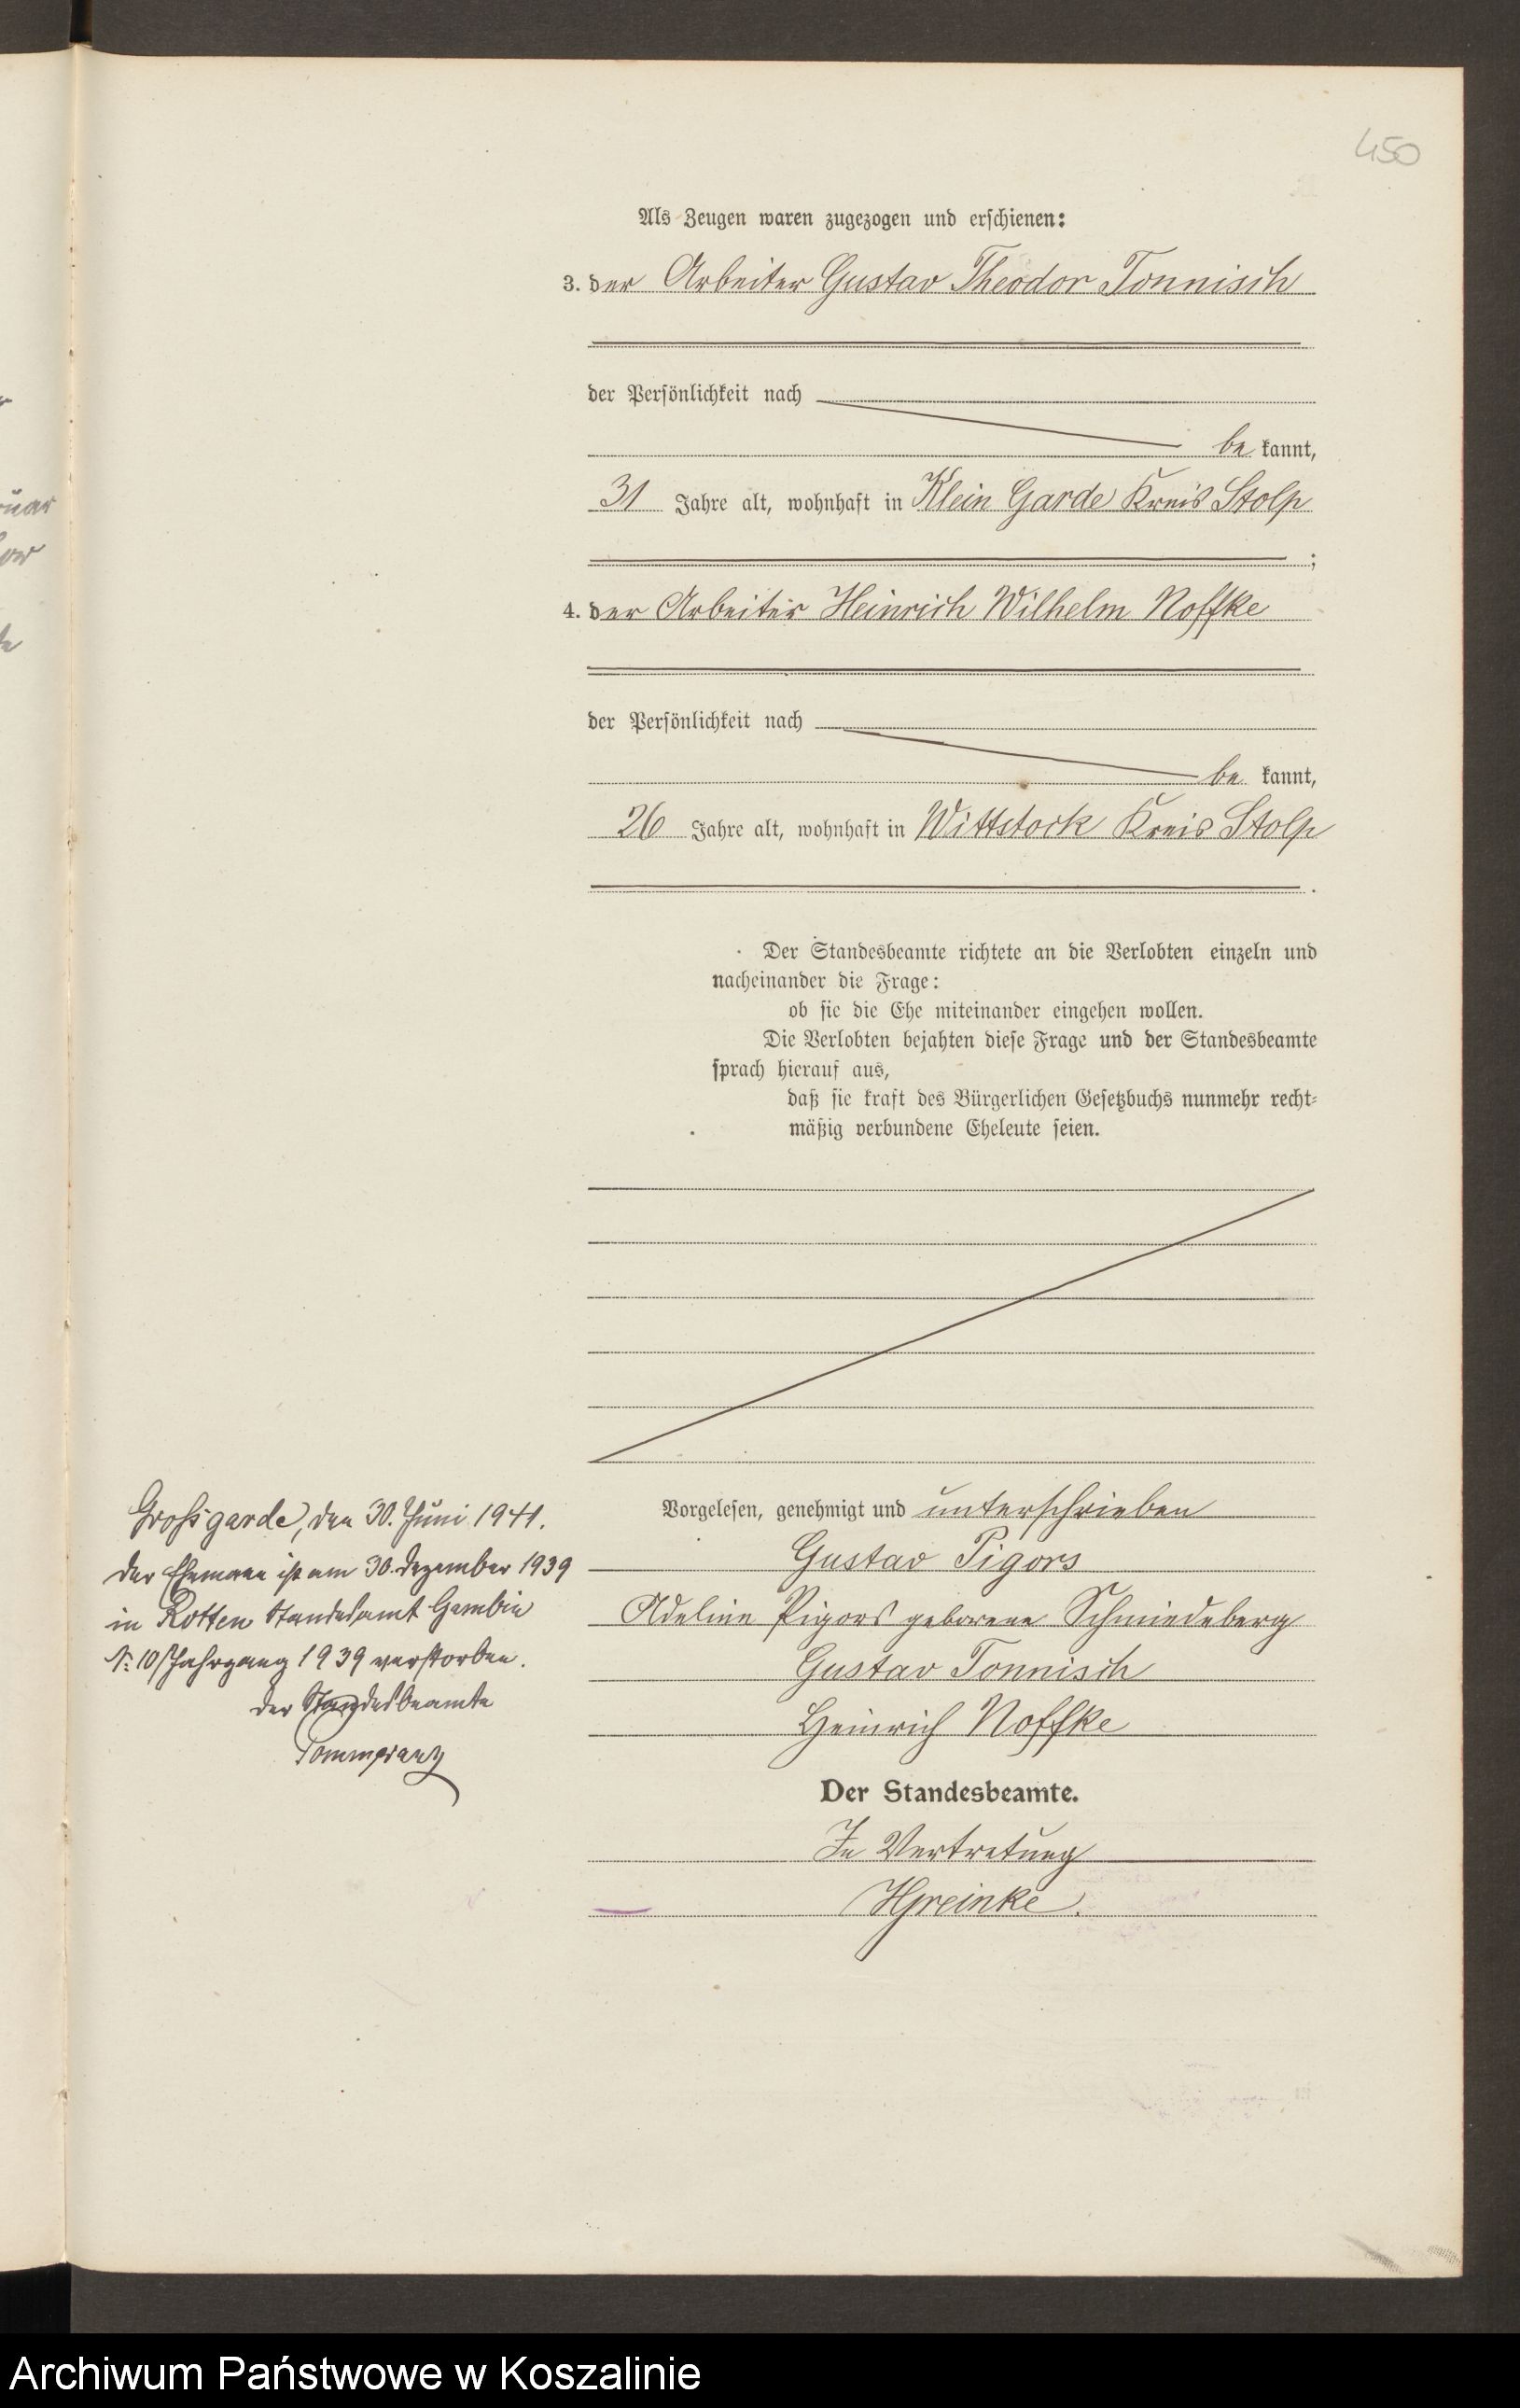 450
Als Zeugen waren zugezogen und erschienen:
3. der Arbeiter Gustav Theodor Tonnisch
der Persönlichkeit nach
be kannt,
31 Jahre alt, wohnhaft in Klein Garde Kreis Stolp
;
4. der Arbeiter Heinrich Wilhelm Noffke
der Persönlichkeit nach
be kannt,
26 Jahre alt, wohnhaft in Wittstock Kreis Stolp
.
Der Standesbeamte richtete an die Verlobten einzeln und
nacheinander die Frage:
ob sie die Ehe miteinander eingehen wollen.
Die Verlobten bejahten diese Frage und der Standesbeamte
sprach hierauf aus,
daß sie kraft des Bürgerlichen Gesetzbuchs nunmehr recht-
mäßig verbundene Eheleute seien.
Vorgelesen, genehmigt und unterschrieben
Gustav Pigors
Adeline Pigors geborene Schmiedeberg
Gustav Tonnisch
Heinrich Noffke
Der Standesbeamte.
In Vertretung
HGreinke.
Großgarde, den 30. Juni 1941.
Der Ehemann ist am 30. Dezember 1939
in Rotten Standesamt Gambin
Nr. 10/Jahrgang 1939 verstorben.
Der Standesbeamte
Pommeranz
Archiwum Państwowe w Koszalinie